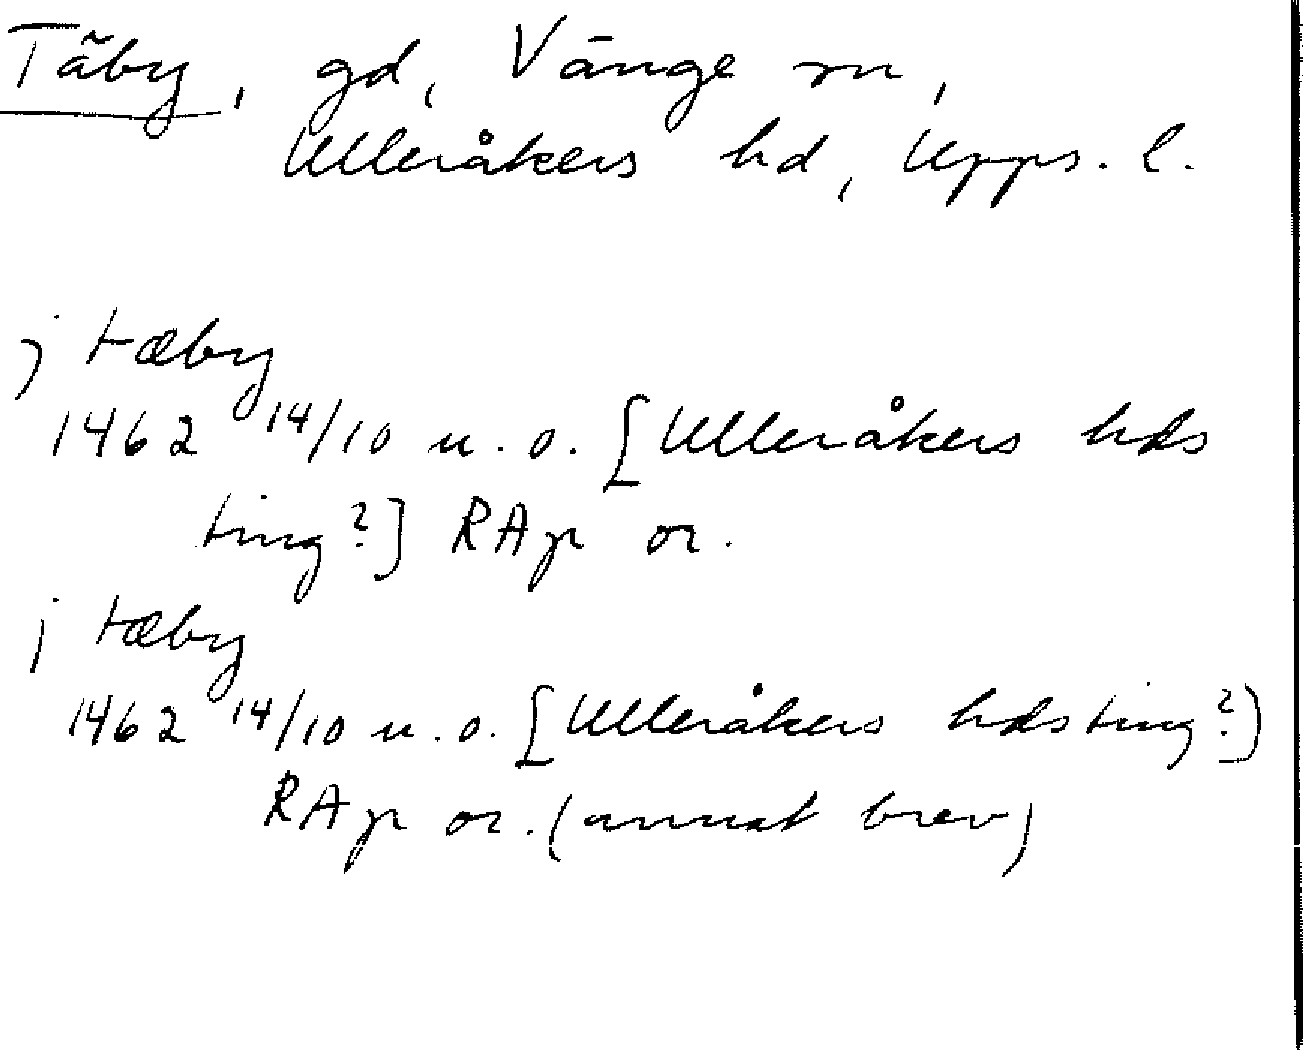 Täby, gd, Vänge sn,
Ulleråkers hd, Upps. l.
j tæby
1462 14/10 u.o. [Ulleråkers hds
ting?] RAp or.
j tæby
1462 14/10 u.o. [Ulleråkers hdsting?]
RAp or. (annat brev)